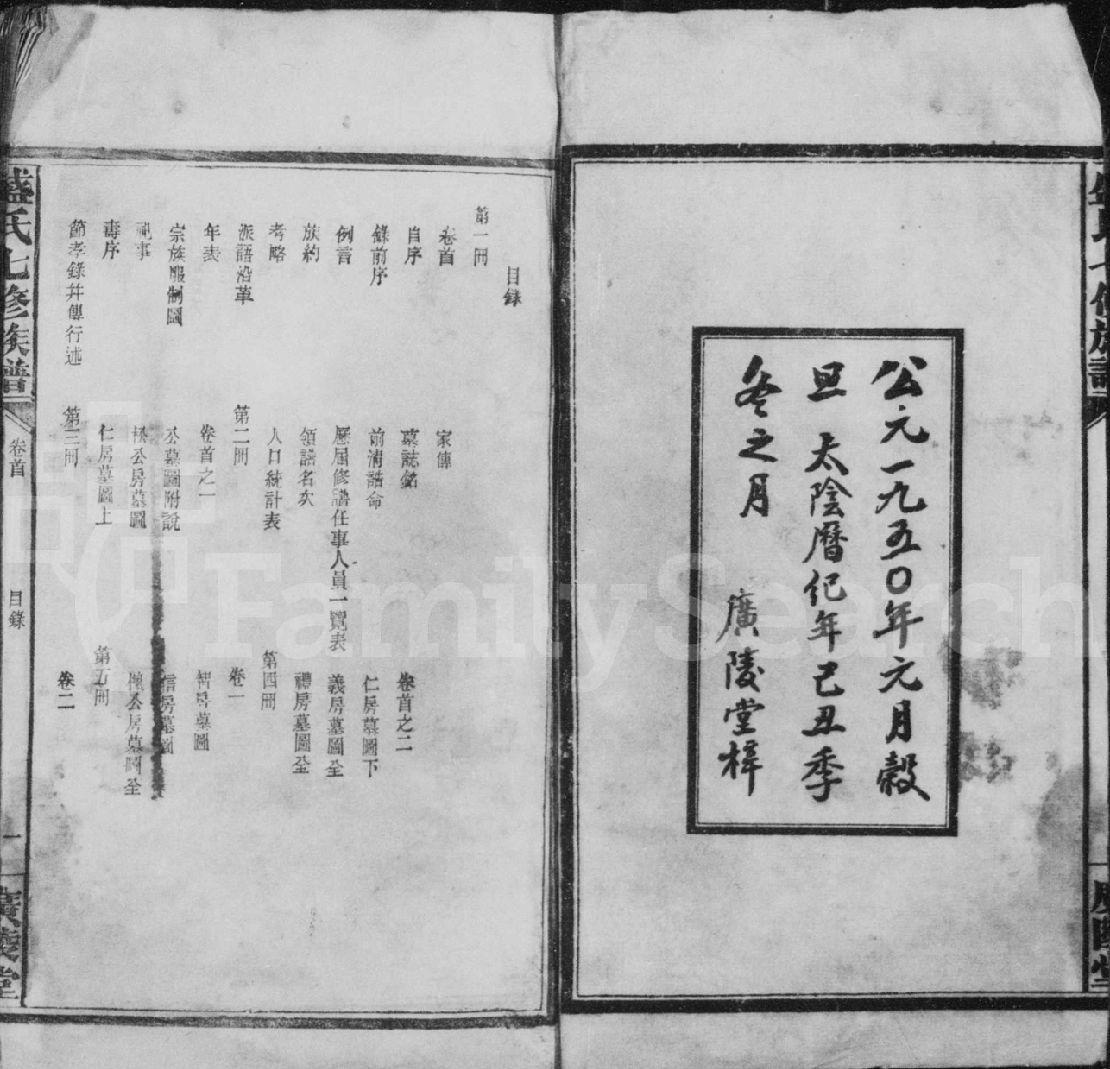 公元一九五〇年元月穀
旦 太陰曆紀年己丑季
冬之月 廣陵堂梓
目錄
第一冊
卷首
自序
錄前序
例言
族約
考略
派語沿革
年表
宗族服制圖
祀事
壽序
節孝錄并傳行述
家傳
墓誌銘
前清誥命
歷屆修譜任事人員一覽表
領譜名次
人口統計表
第二冊
卷首之一
公墓圖附說
公房墓圖
仁房墓圖上
第三冊
卷首之二
仁房墓圖下
義房墓圖全
禮房墓圖全
第四冊
卷一
智房墓圖
信房墓圖
公房墓圖全
第五冊
卷二
盛氏七修族譜
卷首
目錄
一
廣陵堂
FamilySearch